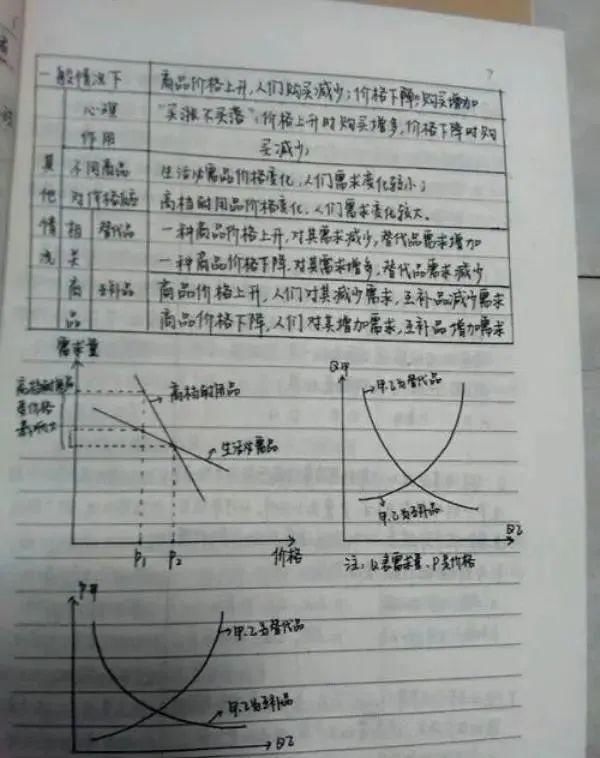 7
一般情况下 商品价格上升,人们购买减少;价格下降,购买增加
心理 "买涨不买落":价格上升时购买增多,价格下降时购
作用 买减少;
其 不同商品 生活必需品价格变化,人们需求变化较小;
他 对价格 高档耐用品价格变化,人们需求变化较大。
情 相 替代品 一种商品价格上升,对其需求减少,替代品需求增加
况 关 一种商品价格下降,对其需求增多,替代品需求减少
商 互补品 商品价格上升,人们对其减少需求,互补品减少需求
品 商品价格下降,人们对其增加需求,互补品增加需求
需求量
高档耐用品
受价格
影响大
高档耐用品
生活必需品
P1 P2 价格
Q甲
甲.乙为替代品
甲.乙为互补品
Q乙
注:Q是需求量、P是价格
P甲
甲.乙为替代品
甲.乙为互补品
Q乙